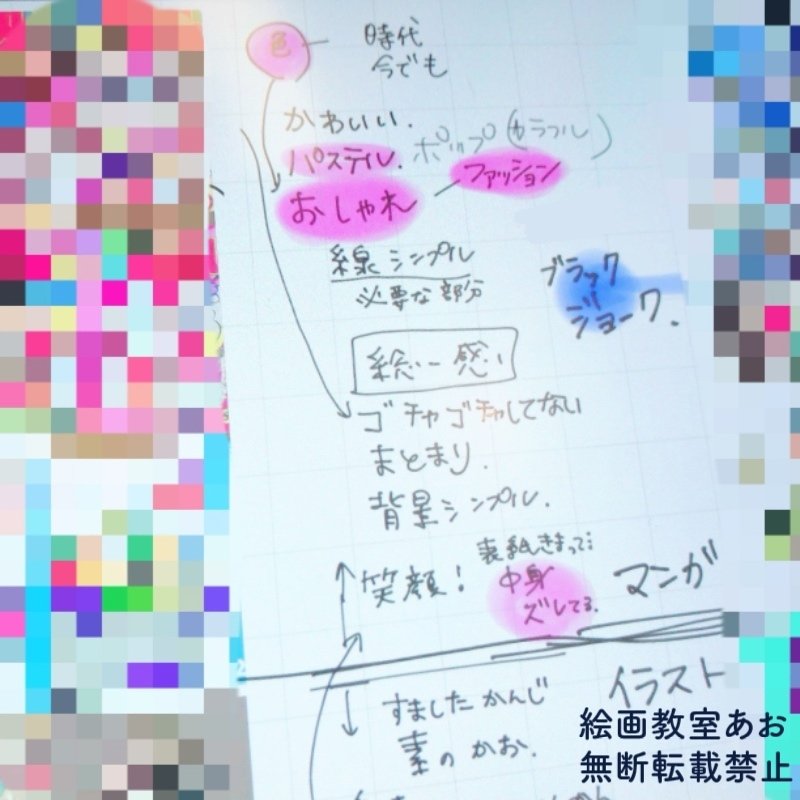 色 — 時代
今でも
かわいい.
パステル. ポップ(カラフル)
おしゃれ — ファッション
線シンプル
必要な部分
ブラック
ジョーク.
統一感
ゴチャゴチャしてない
まとまり.
背景シンプル.
笑顔!
表紙きまって
中身
ズレてる.
マンガ
イラスト
すましたかんじ
素のかお.
絵画教室あお
無断転載禁止